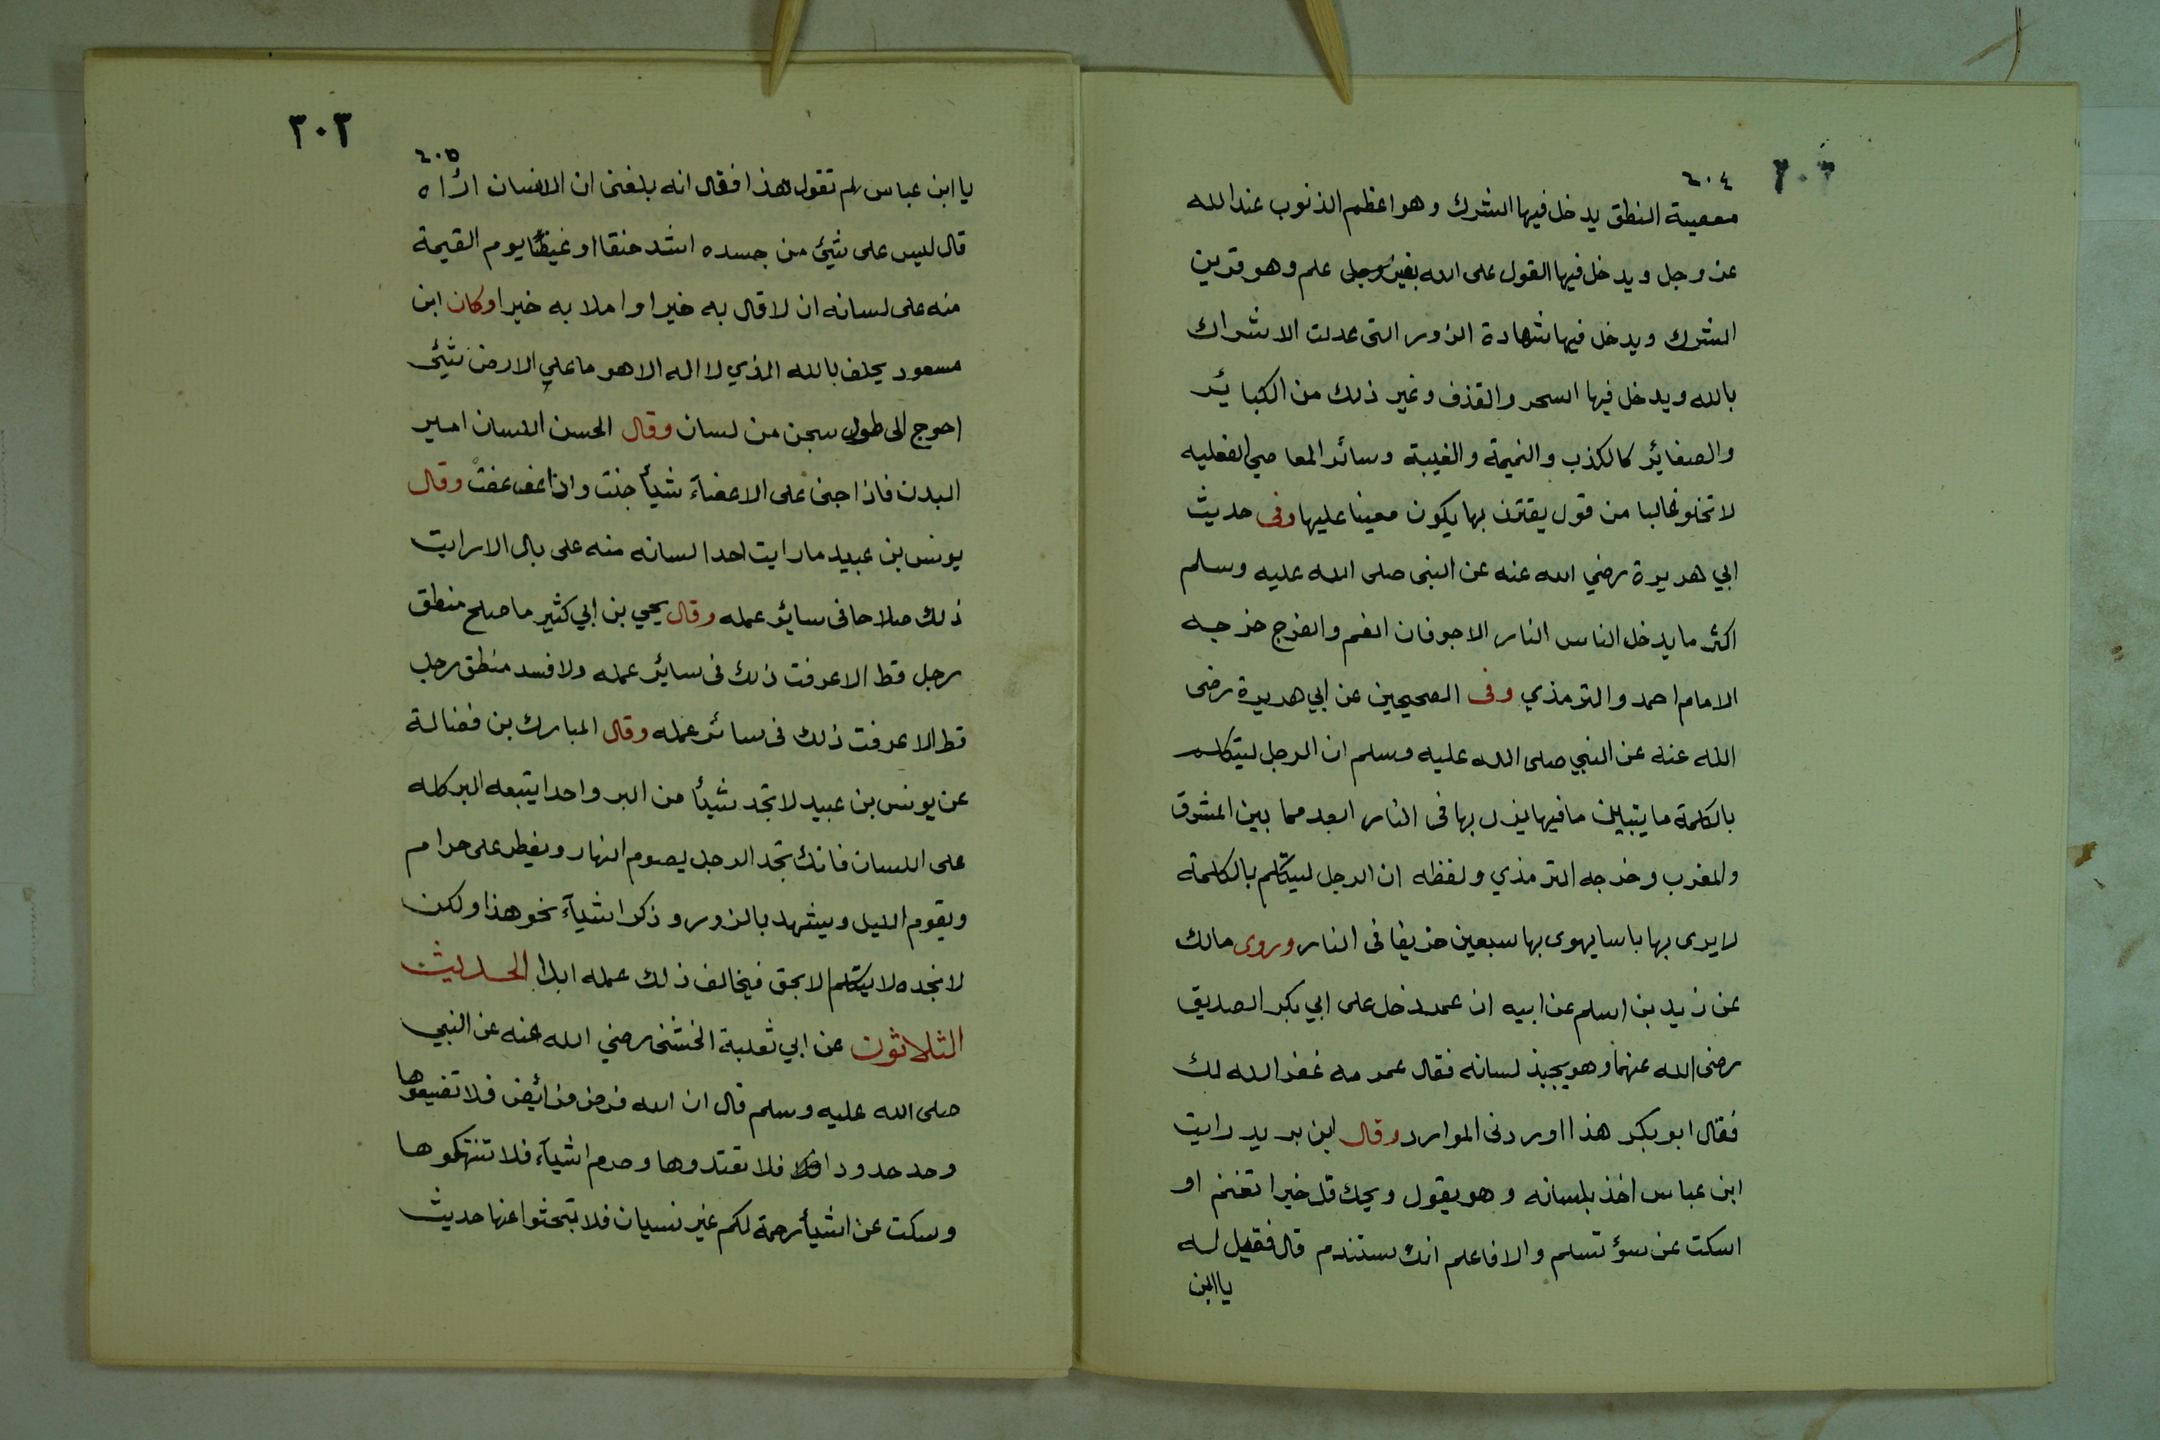 ٦٠٤
معصية النطق يدخل فيها الشرك وهو اعظم الذنوب عند الله
عز وجل ويدخل فيها القول على الله بغير علم وهو قرين
الشرك ويدخل فيها شهادة الزور التى عدلت الاشراك
بالله ويدخل فيها السحر والقذف وغير ذلك من الكبائر
والصغائر كالكذب والنميمة والغيبة وسائر المعاصي الفعليه
لا تخلو غالبا من قول يقترن بها يكون معينا عليها وفى حديث
ابي هريرة رضي الله عنه عن النبى صلى الله عليه وسلم
اكثر ما يدخل الناس النار الاجوفان الفم والفرج خرجه
الامام احمد والترمذي وفى الصحيحين عن ابي هريرة رضى
الله عنه عن النبي صلى الله عليه وسلم ان الرجل ليتكلم
بالكلمة ما يتبين ما فيها يزل بها فى النار ابعد مما بين المشرق
والمغرب وخرجه الترمذي ولفظه ان الرجل ليتكلم بالكلمة
لا يرى بها باسا يهوى بها سبعين خريفا فى النار وروى مالك
عن زيد بن اسلم عن ابيه ان عمر دخل على ابي بكر الصديق
رضى الله عنهما وهو يجبذ لسانه فقال عمر مه غفر الله لك
فقال ابو بكر هذا اوردنى الموارد وقال ابن بريد رايت
ابن عباس اخذ بلسانه وهو يقول ويحك قل خيرا تغنم او
اسكت عن سوٓ تسلم والا فاعلم انك ستندم قال فقيل له
يا ابن
٣٠٣
٦٠٥
يا ابن عباس لم تقول هذا فقال انه بلغنى ان الانسان اراه
قال ليس على شيئ من جسده اشد حنقا او غيظا يوم القيمة
منه على لسانه ان لا قال به خيرا او املا به خيرا وكان ابن
مسعود يحلف بالله الذي لا اله الا هو ما على الارض شيئى
احوج الى طول سجن من لسان وقال الحسن اللسان امير
البدن فاذا جنى على الاعضآء شيأ جنت واذا عف عفت وقال
يونس بن عبيد ما رايت احدا لسانه منه على بال الا رايت
ذلك صلاحا فى سائر عمله وقال يحيي بن ابي كثير ما صلح منطق
رجل قط الا عرفت ذلك فى سائر عمله ولا فسد منطق رجل
قط الا عرفت ذلك فى سائر عمله وقال المبارك بن فضالة
عن يونس بن عبيد لا تجد شيأ من البر واحدا يتبعه البر كله
على اللسان فانك تجد الرجل يصوم النهار ويفطر على حرام
ويقوم الليل ويشهد بالزور وذكر اشيآء نحو هذا ولكن
لا تجده لا يتكلم الا بحق فيخالف ذلك عمله ابدا الحديث
الثلاثون عن ابي ثعلبة الخشنى رضي الله عنه عن النبي
صلى الله عليه وسلم قال ان الله فرض فرائٔض فلا تضيعوها
وحد حدودا فلا تعتدوها وحرم اشيآء فلا تنتهكوها
وسكت عن اشيأ رحمة لكم غير نسيان فلا تبحثوا عنها حديث